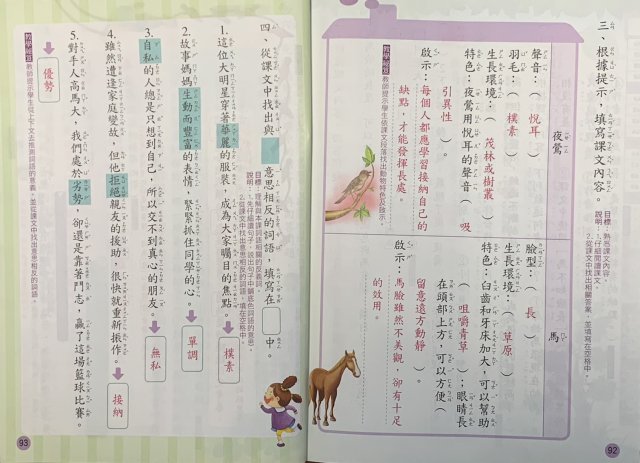 三、根據提示，填寫課文內容。
目標：熟悉課文內容。
說明：1.仔細閱讀課文。
2.從課文中找出相關答案，並填寫在空格中。
夜鶯
聲音：（悅耳）
羽毛：（樸素）
生長環境：（茂林或樹叢）
特色：夜鶯用悅耳的聲音（吸
引異性）。
啟示：每個人都應學習接納自己的
缺點，才能發揮長處。
教師提示學生依課文段落找出動物特色及啟示。
馬
臉型：（長）
生長環境：（草原）
特色：臼齒和牙床加大，可以幫助
（咀嚼青草）；眼睛長
在頭部上方，可以方便（
留意遠方動靜）。
啟示：馬臉雖然不美觀，卻有十足
的效用。
92
四、從課文中找出與 意思相反的詞語，填寫在 中。
目標：理解與本課詞語相關的反義詞。
說明：1.先仔細讀句子，說出句子中鋪底色詞語的意思。
2.從課文中找出意思相反的詞語，填寫在空格中。
1.這位大明星穿著華麗的服裝，成為大家矚目的焦點。
樸素
2.故事媽媽生動而豐富的表情，緊緊抓住同學的心。
單調
3.自私的人總是只想到自己，所以交不到真心的朋友。
無私
4.雖然遭逢家庭變故，但他拒絕親友的援助，很快就重新振作。
接納
5.對手人高馬大，我們處於劣勢，卻還是靠著鬥志，贏了這場籃球比賽。
優勢
教師提示學生從上下文去推測詞語的意義，並從課文中找出意思相反的詞語。
93